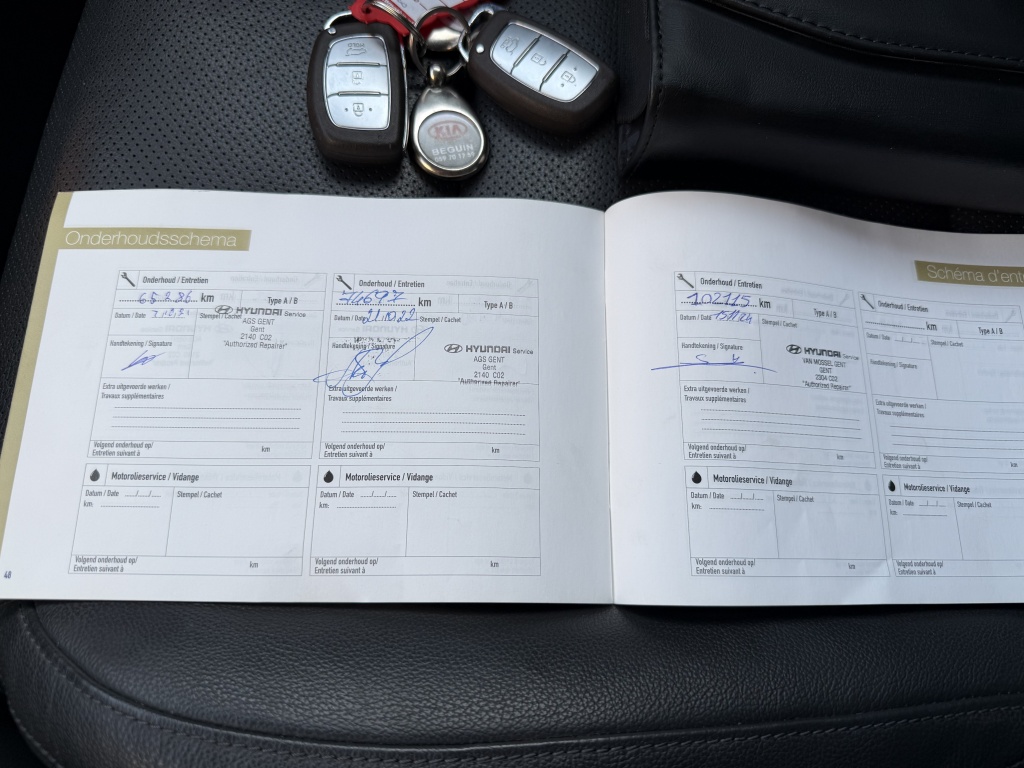 HOLD
KIA
BEGUIN
Onderhoudsschema
Onderhoud / Entretien
65.236 km
Type A / B
Datum / Date
Stempel / Cachet
HYUNDAI Service
AGS GENT
Gent
2140 C02
"Authorized Repairer"
Handtekening / Signature
Extra uitgevoerde werken /
Travaux supplémentaires
Volgend onderhoud op/
Entretien suivant à
km
Motorolieservice / Vidange
Datum / Date __/__/__
Stempel / Cachet
km:
Volgend onderhoud op/
Entretien suivant à
km
48
Onderhoud / Entretien
74697 km
Type A / B
Datum / Date 21.10.22
Stempel / Cachet
HYUNDAI Service
AGS GENT
Gent
2140 C02
"Authorized Repairer"
Handtekening / Signature
Extra uitgevoerde werken /
Travaux supplémentaires
Volgend onderhoud op/
Entretien suivant à
km
Motorolieservice / Vidange
Datum / Date __/__/__
Stempel / Cachet
km:
Volgend onderhoud op/
Entretien suivant à
km
Schéma d'entre
Onderhoud / Entretien
102115 km
Type A / B
Datum / Date 15/1/24
Stempel / Cachet
HYUNDAI Service
VAN MOSSEL GENT
GENT
2304 C02
"Authorized Repairer"
Handtekening / Signature
Extra uitgevoerde werken /
Travaux supplémentaires
Volgend onderhoud op/
Entretien suivant à
km
Motorolieservice / Vidange
Datum / Date __/__/__
Stempel / Cachet
km:
Volgend onderhoud op/
Entretien suivant à
km
Onderhoud / Entretien
km
Type A / B
Datum / Date __/__/__
Stempel / Cachet
Handtekening / Signature
Extra uitgevoerde werken /
Travaux supplémentaires
Volgend onderhoud op/
Entretien suivant à
km
Motorolieservice / Vidange
Datum / Date __/__/__
Stempel / Cachet
km:
Volgend onderhoud op/
Entretien suivant à